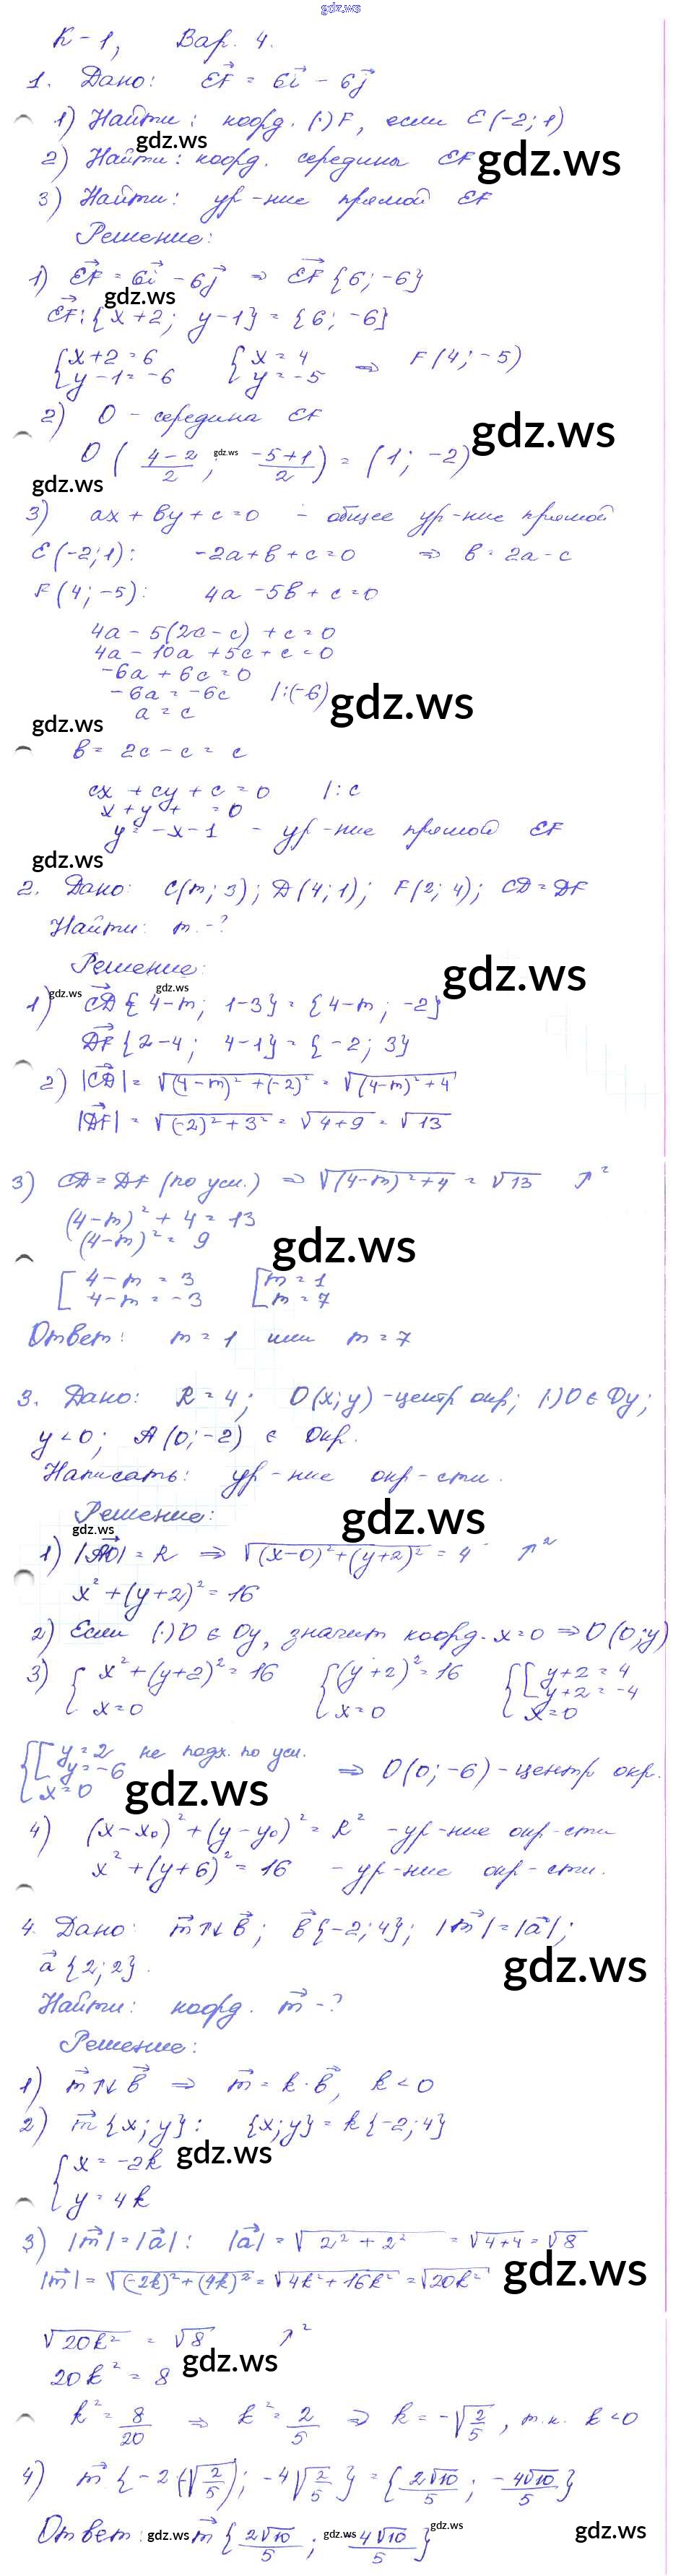 gdz.ws
К-1, Вар. 4.
1. Дано: EF = 6i - 6j
1) Найти: коорд. (·) F, если E(-2; 1)
gdz.ws
2) Найти: коорд. середины EF
gdz.ws
3) Найти: ур-ние прямой EF
Решение:
1) EF = 6i - 6j ⇒ EF {6; -6}
gdz.ws
EF: {x+2; y-1} = {6; -6}
{x+2=6 {x=4 ⇒ F(4; -5)
{y-1=-6 {y=-5
2) O - середина EF
gdz.ws
O ( (4-2)/2 ; (-5+1)/2 ) = (1; -2)
gdz.ws
gdz.ws
3) ax+by+c=0 - общее ур-ние прямой
E(-2; 1): -2a+b+c=0 ⇒ b=2a-c
F(4; -5): 4a-5b+c=0
4a-5(2a-c)+c=0
4a-10a+5c+c=0
-6a+6c=0
-6a=-6c |:(-6)
gdz.ws
a=c
gdz.ws
b=2c-c=c
cx+cy+c=0 |:c
x+y+ =0
y=-x-1 - ур-ние прямой EF
gdz.ws
2. Дано: C(m; 3); D(4; 1); F(2; 4); CD=DF
Найти: m-?
Решение:
gdz.ws
gdz.ws gdz.ws
1) CD {4-m; 1-3} = {4-m; -2}
DF {2-4; 4-1} = {-2; 3}
2) |CD| = √((4-m)²+(-2)²) = √((4-m)²+4)
|DF| = √((-2)²+3²) = √(4+9) = √13
3) CD=DF (по усл.) ⇒ √((4-m)²+4) = √13 ↑²
(4-m)²+4=13
(4-m)²=9
gdz.ws
[4-m=3 [m=1
[4-m=-3 [m=7
Ответ: m=1 или m=7
3. Дано: R=4; O(x; y) - центр окр; (·) O ∈ Oy;
y<0; A(0; -2) ∈ Окр.
Написать: ур-ние окр-сти.
Решение:
gdz.ws
gdz.ws
1) |AO|=R ⇒ √((x-0)²+(y+2)²) = 4 ↑²
x²+(y+2)²=16
2) Если (·) O ∈ Oy, значит коорд. x=0 ⇒ O(0; y)
3) {x²+(y+2)²=16 {(y+2)²=16 {[y+2=4
[y+2=-4
{x=0 {x=0 {x=0
{[y=2 не подх. по усл.
[y=-6 ⇒ O(0; -6) - центр окр.
{x=0
gdz.ws
4) (x-x₀)²+(y-y₀)²=R² - ур-ние окр-сти
x²+(y+6)²=16 - ур-ние окр-сти.
4. Дано: m↑↓b; b{-2; 4}; |m|=|a|;
a{2; 2}.
gdz.ws
Найти: коорд. m-?
Решение:
1) m↑↓b ⇒ m=k·b, k<0
2) m{x; y}: {x; y}=k{-2; 4}
gdz.ws
{x=-2k
{y=4k
3) |m|=|a|: |a|=√(2²+2²)=√(4+4)=√8
gdz.ws
|m|=√((-2k)²+(4k)²)=√(4k²+16k²)=√(20k²)
√(20k²)=√8 ↑²
gdz.ws
20k²=8
k²=8/20 ⇒ k²=2/5 ⇒ k=-√(2/5), т.к. k<0
4) m{-2·(-√(2/5)); -4√(2/5)} = {2√10/5; -4√10/5}
Ответ: m{2√10/5; -4√10/5}
gdz.ws gdz.ws gdz.ws gdz.ws